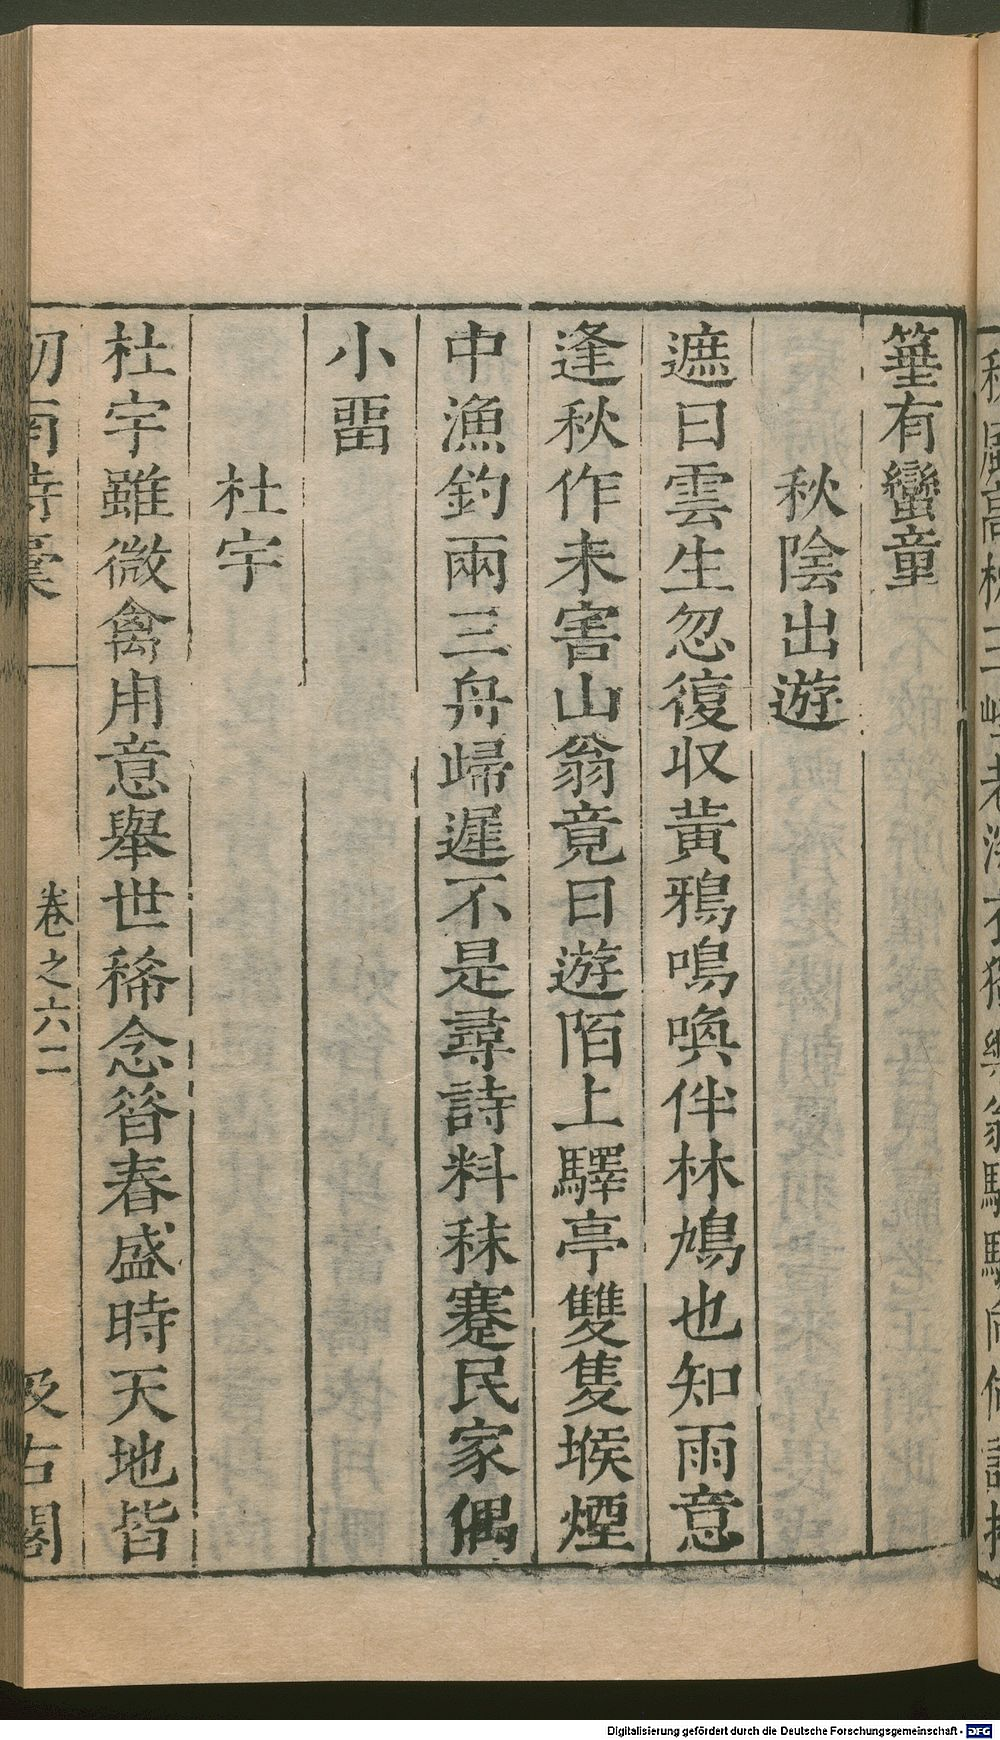 箠有蠻童
秋陰出遊
遮日雲生忽復収黃鴉鳴喚伴林鳩也知雨意
逢秋作未害山翁竟日遊陌上驛亭雙隻堠煙
中漁釣兩三舟歸遲不是尋詩料秣蹇民家偶
小畱
杜宇
杜宇雖微禽用意舉世稀念昝春盛時天地皆
劒南詩稾
卷之六二
汲古閣
Digitalisierung gefördert durch die Deutsche Forschungsgemeinschaft - DFG